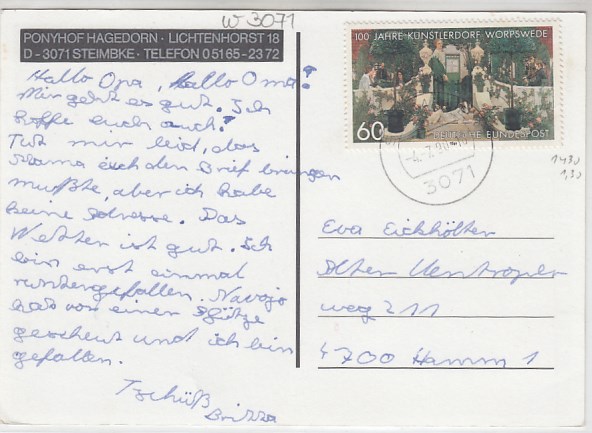 W 3071
PONYHOF HAGEDORN · LICHTENHORST 18
D - 3071 STEIMBKE · TELEFON 0 51 65 - 23 72
Hallo Opa, Hallo Oma!
Mir geht es gut. Ich
hoffe euch auch?
Tut mir leid, das
Mama euch den Brief bringen
mußte, aber ich habe
keine Adresse. Das
Wetter ist gut. Ich
bin erst einmal
runtergefallen. Navajo
hat vor einer Pfütze
gescheut und ich bin
gefallen.
Tschüß
Britta
100 JAHRE KÜNSTLERDORF WORPSWEDE
60
DEUTSCHE BUNDESPOST
3071
1430
1,50
Eva Eickhölter
Alter Uentroper
weg 211
4700 Hamm 1